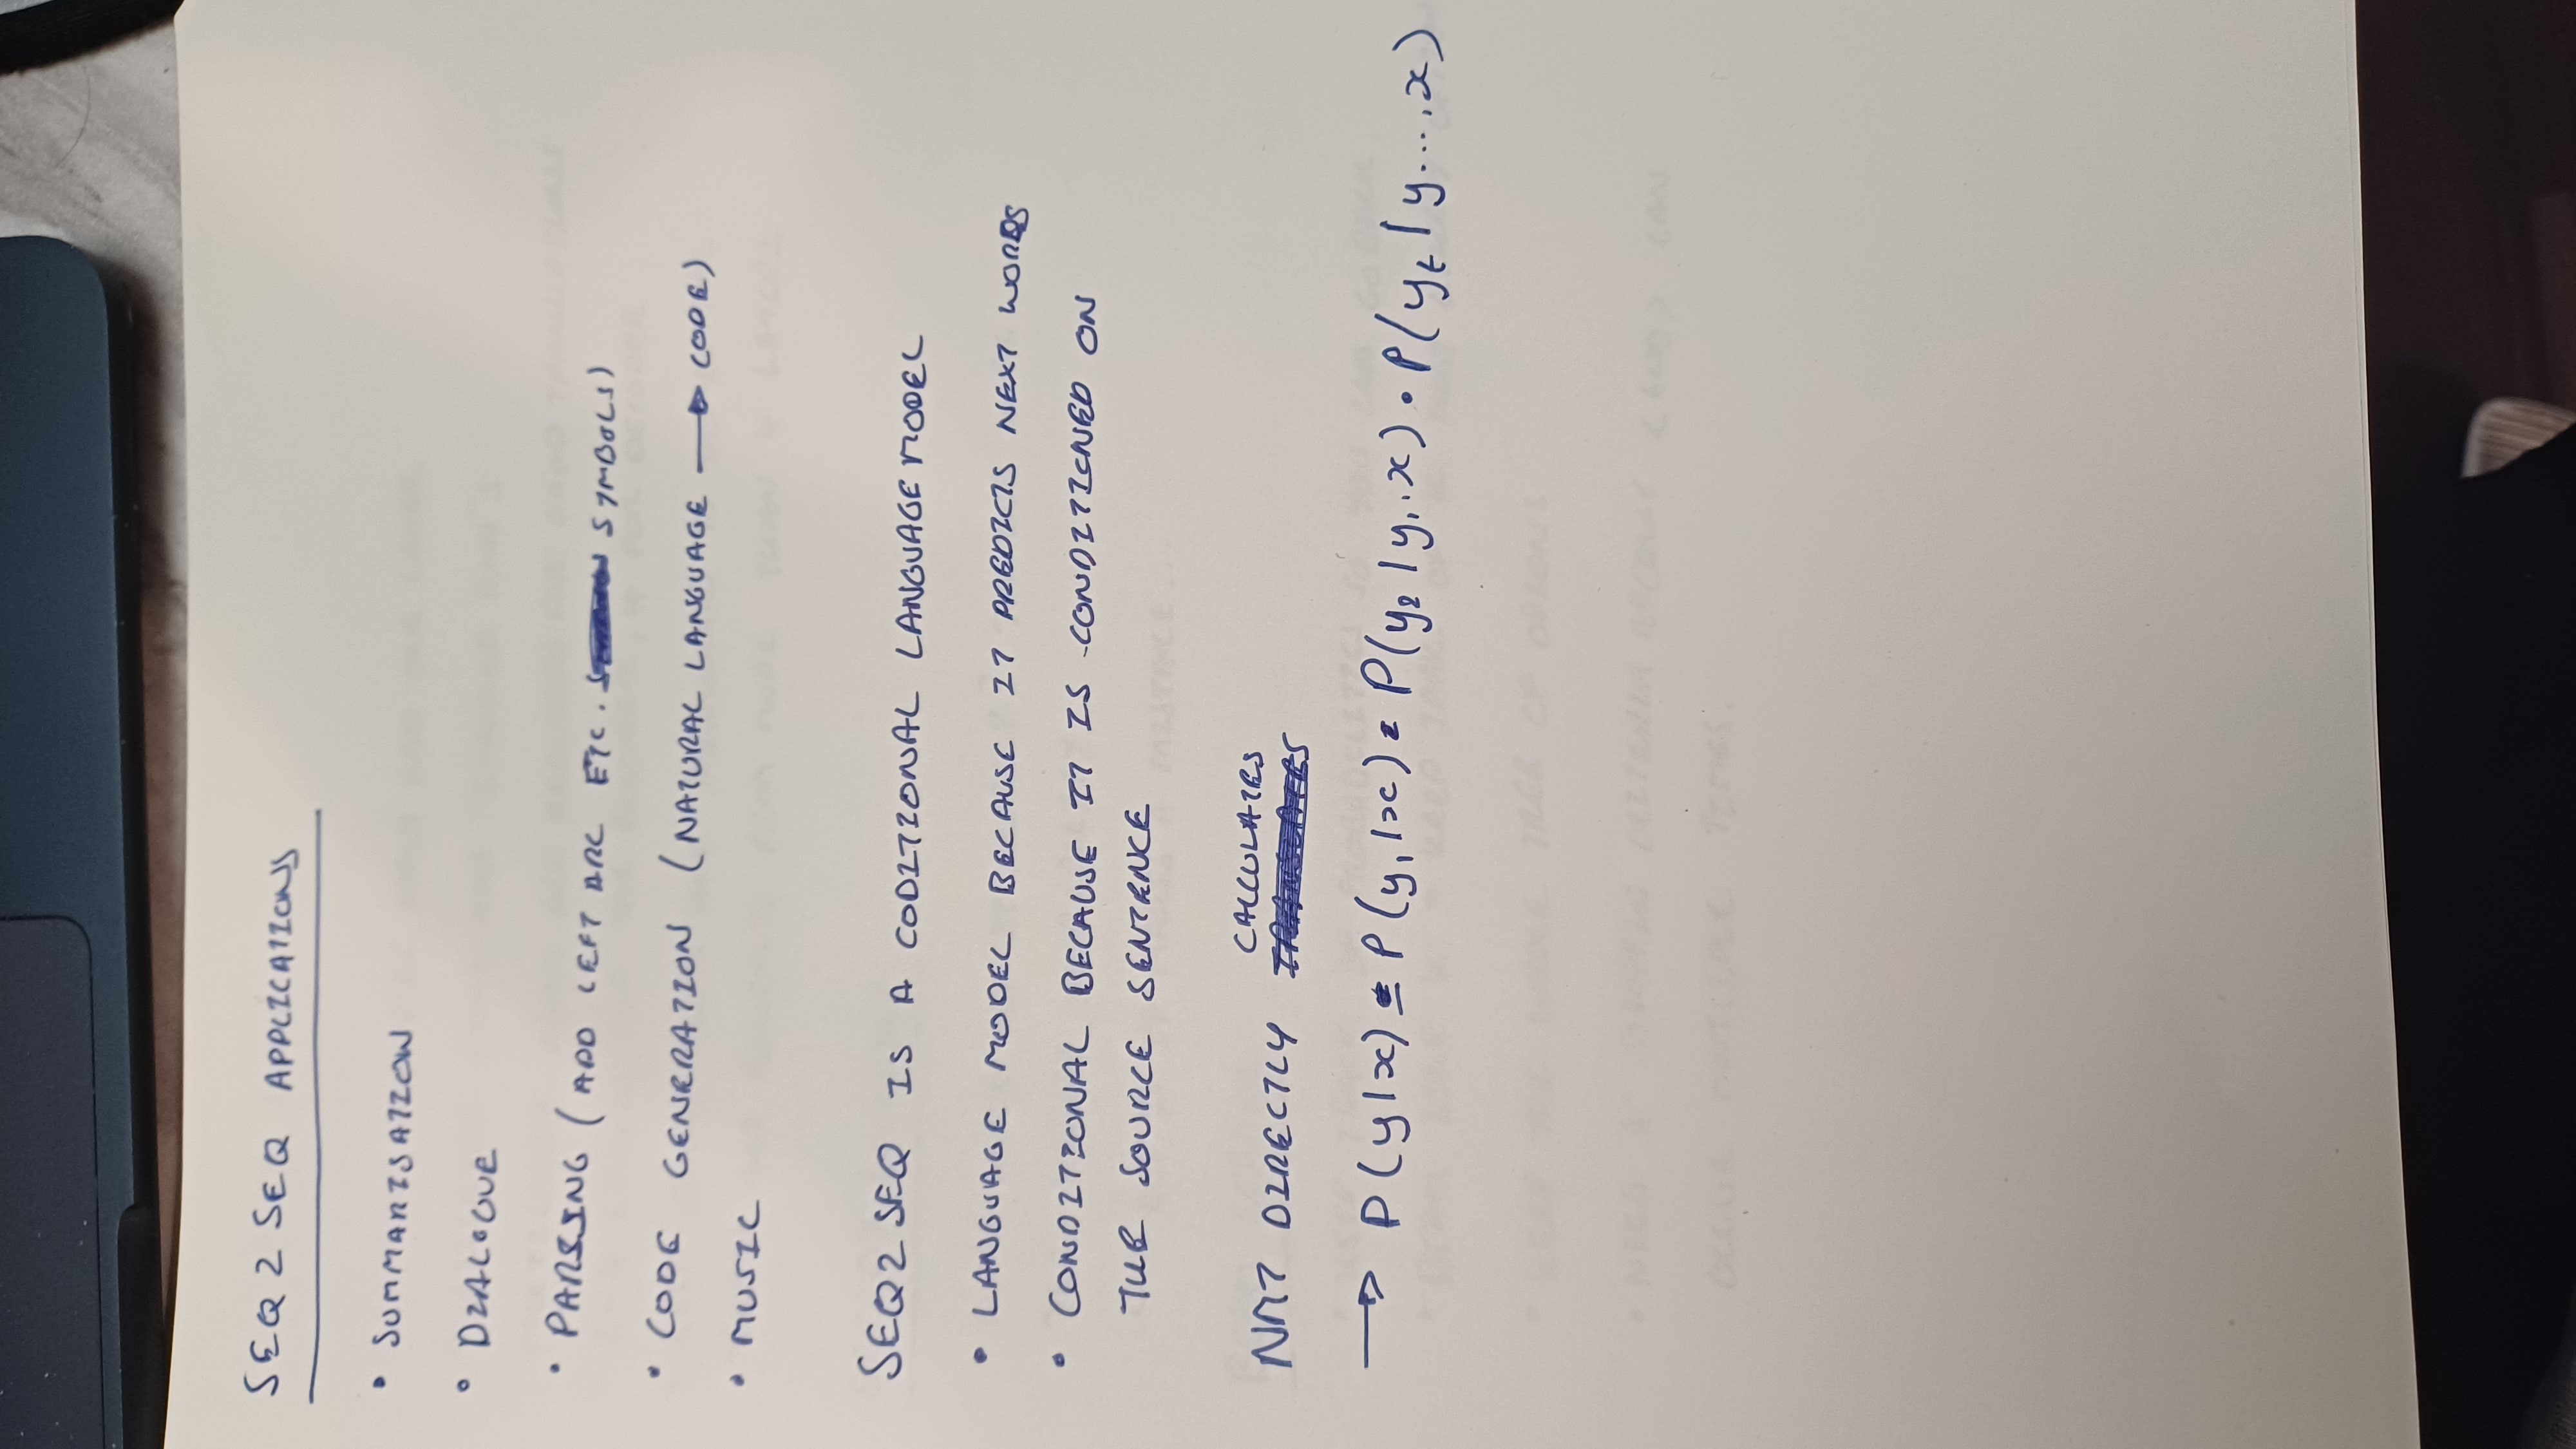 SEQ2SEQ APPLICATIONS
• SUMMARISATION
• DIALOGUE
• PARSING (ADD LEFT ARC ETC. SYMBOLS)
• CODE GENERATION (NATURAL LANGUAGE → CODE)
• MUSIC
SEQ2SEQ IS A CODITIONAL LANGUAGE MODEL
• LANGUAGE MODEL BECAUSE IT PREDICTS NEXT WORDS
• CONDITIONAL BECAUSE IT IS CONDITIONED ON
THE SOURCE SENTENCE
CALCULATES
NMT DIRECTLY
→ P(y|x) = P(y₁|x) · P(y₂|y₁,x) · P(yₜ|y...,x)